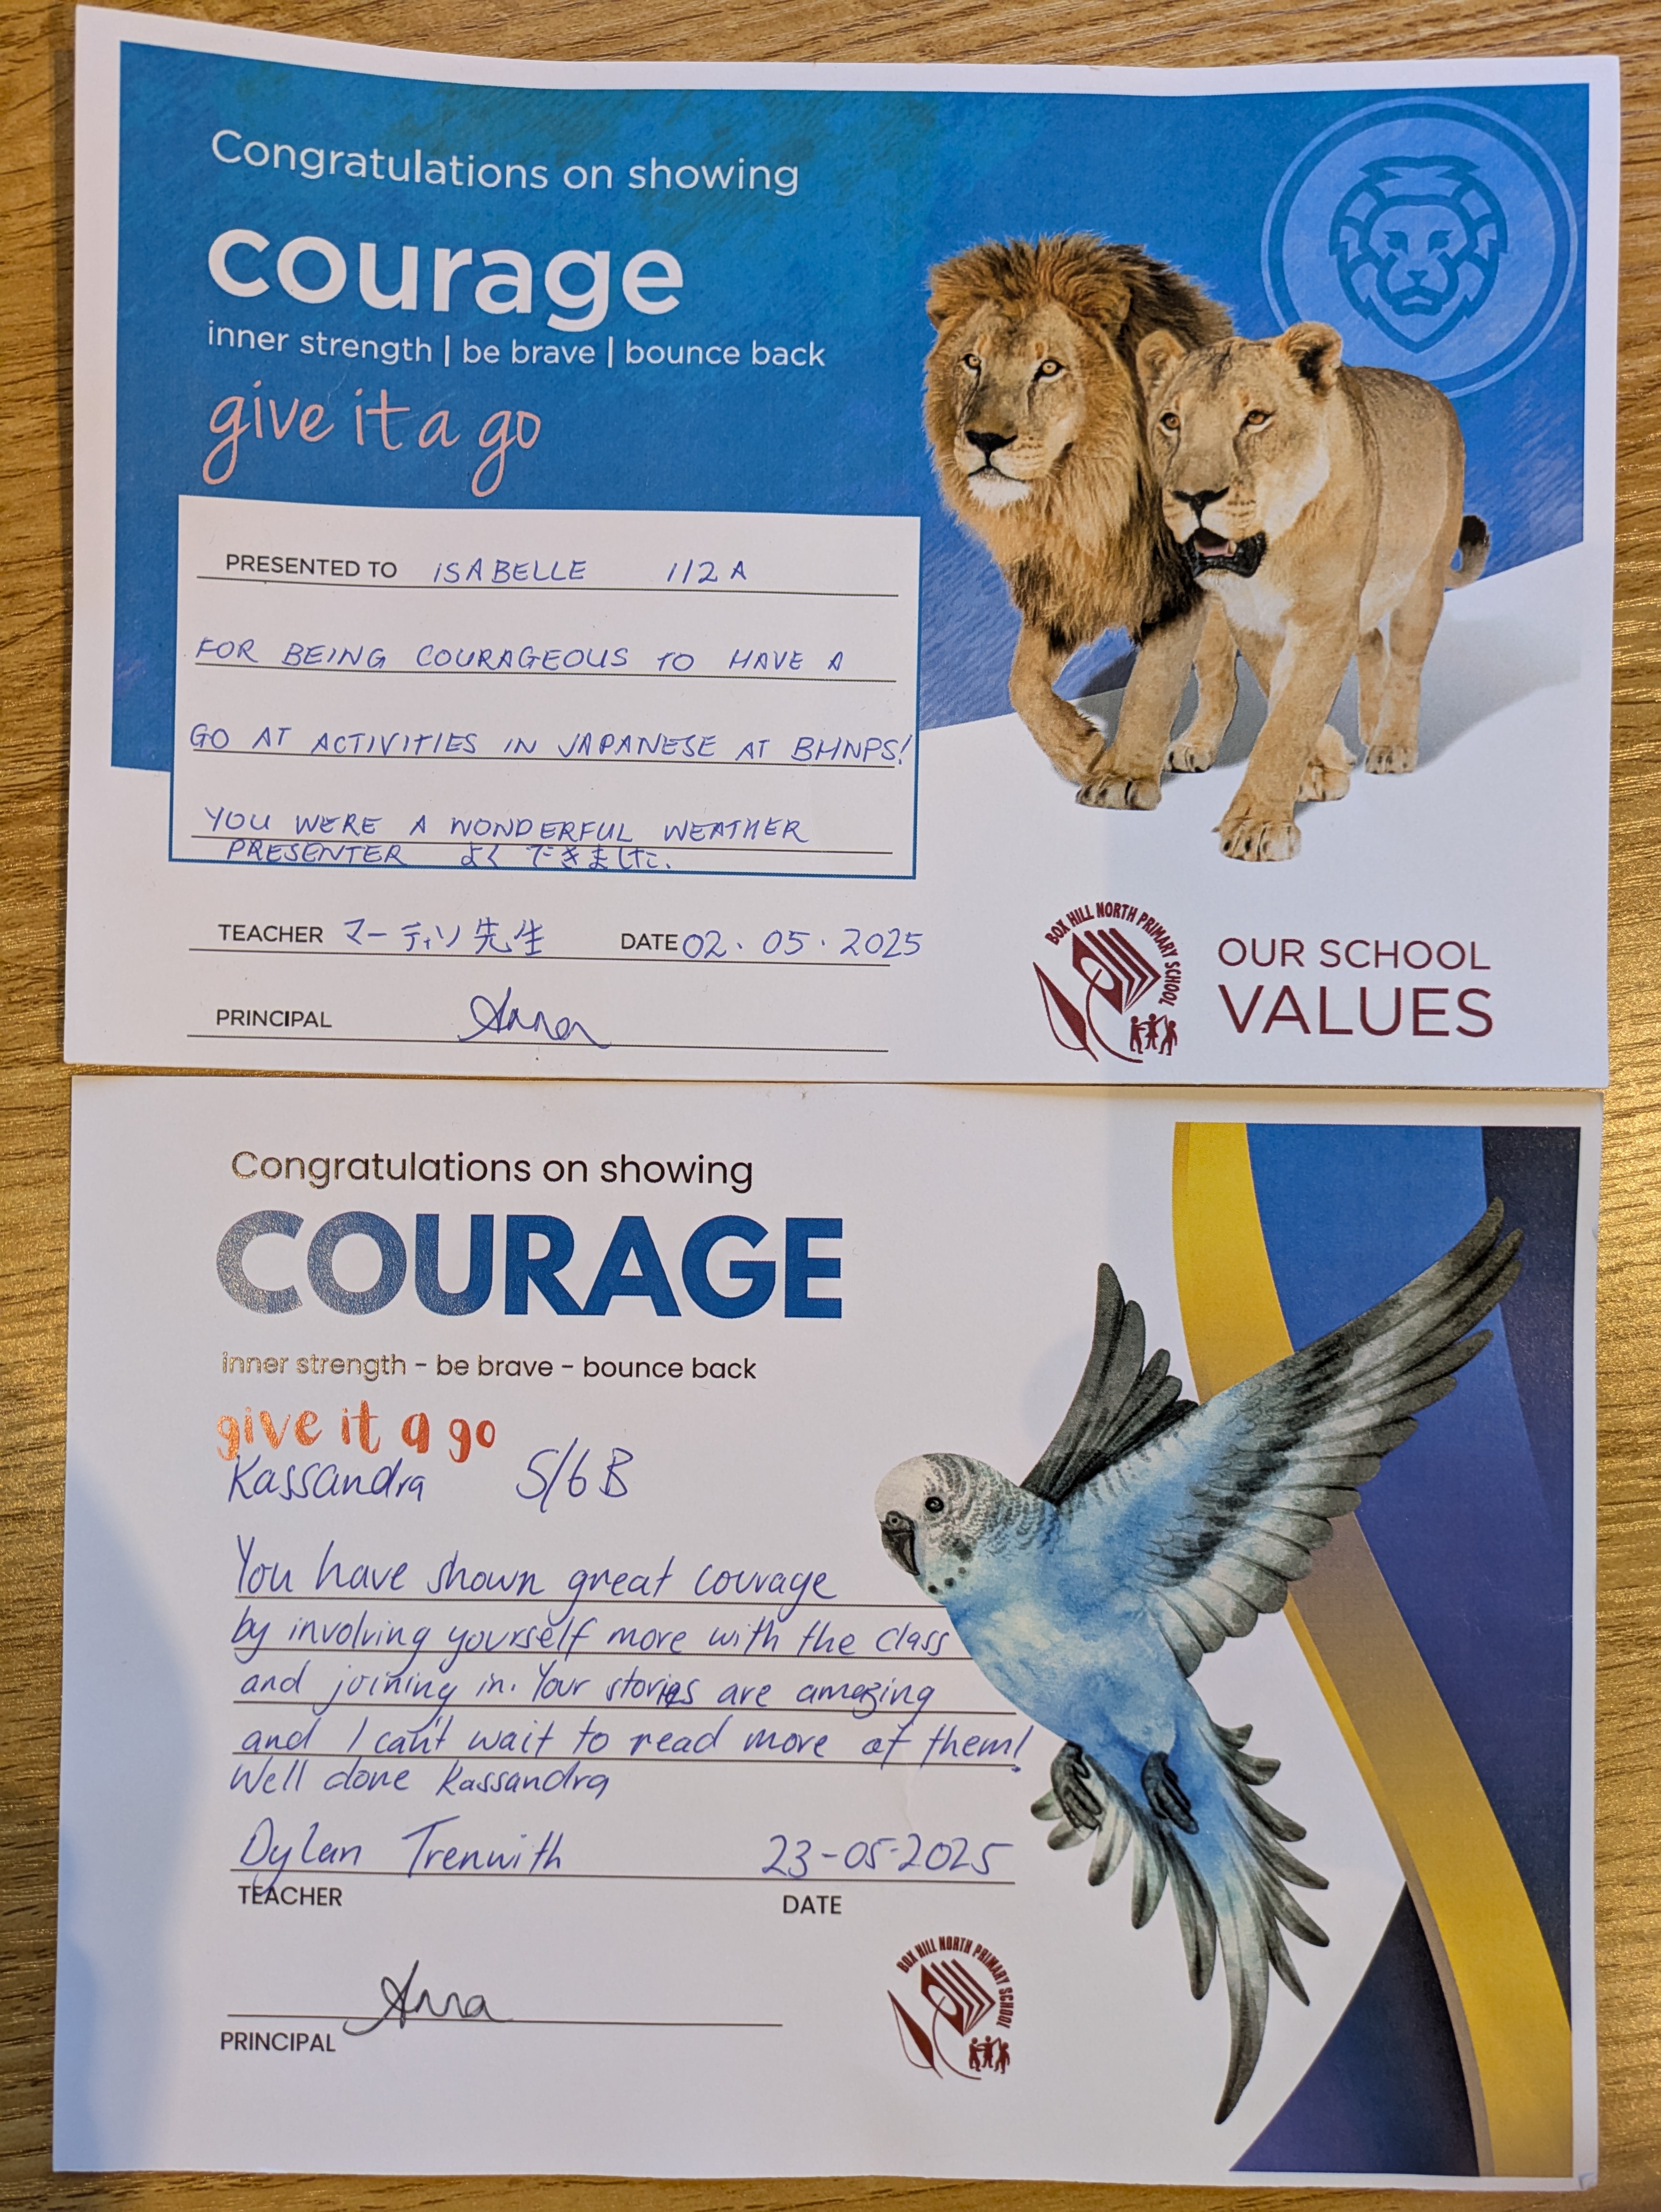 Congratulations on showing
courage
inner strength | be brave | bounce back
give it a go
PRESENTED TO ISABELLE 1/2 A
FOR BEING COURAGEOUS TO HAVE A
GO AT ACTIVITIES IN JAPANESE AT BHNPS!
YOU WERE A WONDERFUL WEATHER
PRESENTER よくできました.
TEACHER マーティン先生 DATE 02.05.2025
PRINCIPAL Anna
BOX HILL NORTH PRIMARY SCHOOL
OUR SCHOOL
VALUES
Congratulations on showing
COURAGE
inner strength - be brave - bounce back
give it a go
Kassandra 5/6 B
You have shown great courage
by involving yourself more with the class
and joining in. Your stories are amazing
and I can't wait to read more of them!
Well done Kassandra
Dylan Trenwith 23-05-2025
TEACHER DATE
Anna
PRINCIPAL
BOX HILL NORTH PRIMARY SCHOOL